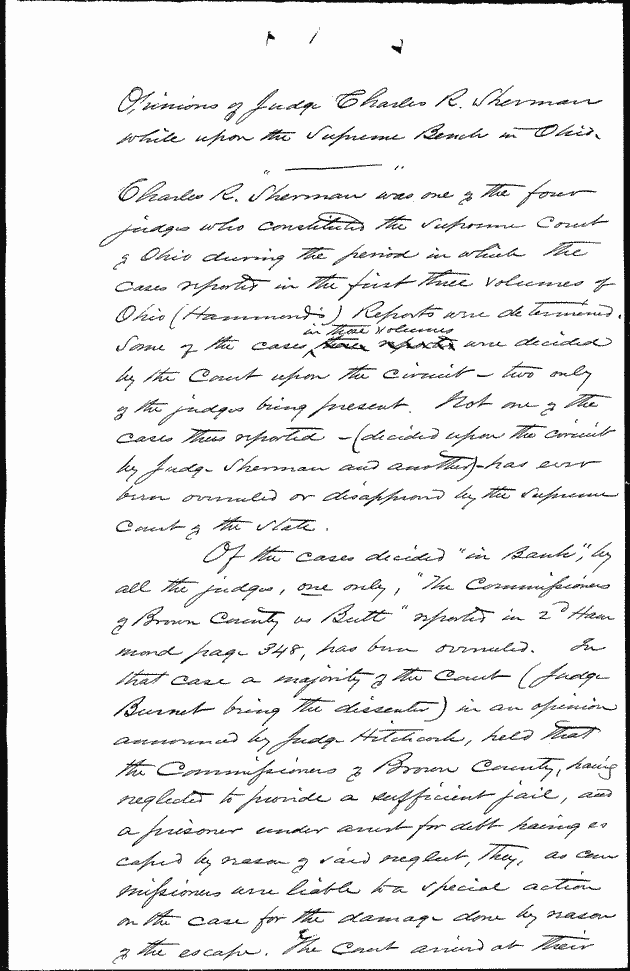 Opinions of Judge Charles R. Sherman
while upon the Supreme Bench in Ohio.
" ——— "
Charles R. Sherman was one of the four
judges who constituted the Supreme Court
of Ohio during the period in which the
cases reported in the first three volumes of
Ohio (Hammond's) Reports were determined.
in those volumes
Some of the cases, these reports were decided
by the Court upon the circuit – two only
of the judges being present. Not one of the
cases thus reported – (decided upon the circuit
by Judge Sherman and another) – has ever
been overruled or disapproved by the Supreme
Court of the State.
Of the cases decided "in Bank", by
all the judges, one only, "The Commissioners
of Brown County vs Butt" reported in 2d Ham
mond page 348, has been overruled. In
that case a majority of the Court (Judge
Burnet being the dissenter) in an opinion
announced by Judge Hitchcock, held that
the Commissioners of Brown County, having
neglected to provide a sufficient jail, and
a prisoner under arrest for debt having es
caped by reason of said neglect, they, as com
missioners were liable to a special action
on the case for the damage done by reason
of the escape. The Court arrived at their